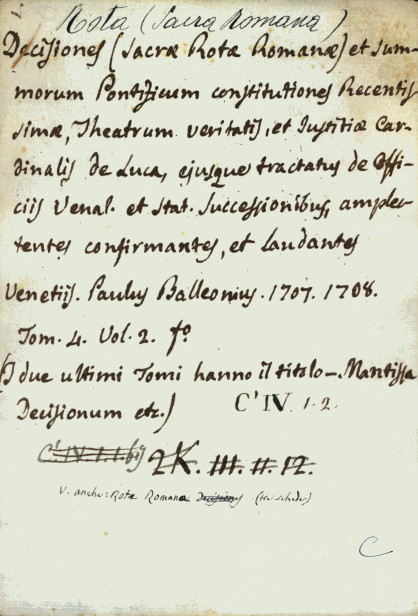 Rota (Sacra Romana)
Decisiones (Sacræ Rotæ Romanæ) et Sum-
morum Pontificum constitutiones Recentis-
simæ, Theatrum veritatis, et Iustitiæ Car-
dinalis de Luca, ejusque tractatus de Offi-
ciis Venal. et Stat. Successionibus, amplec-
tentes confirmantes, et laudantes
Venetiis. Paulus Balleonius. 1707. 1708.
Tom. 4. Vol. 2. fº
(I due ultimi Tomi hanno il titolo - Mantissa
Decisionum etc.) C' IV. 1. 2.
C'. IV. I. I. 2 K. III. II. 12.
V. anche: Rotæ Romanæ Decisiones (tre schede)
C